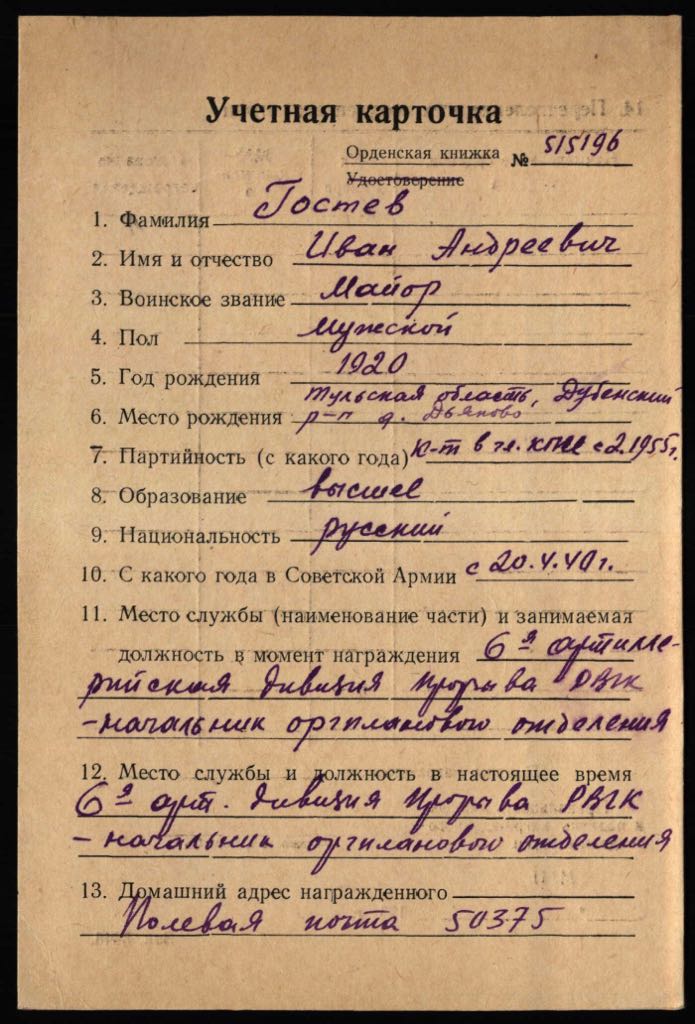 Учетная карточка
Орденская книжка № 515196
Удостоверение
1. Фамилия Гостев
2. Имя и отчество Иван Андреевич
3. Воинское звание Майор
4. Пол Мужской
5. Год рождения 1920
6. Место рождения Тульская область, Дубенский
р-н д. Дьяково
7. Партийность (с какого года) к-т в чл. КПСС с 2.1955г.
8. Образование высшее
9. Национальность русский
10. С какого года в Советской Армии с 20.4.40г.
11. Место службы (наименование части) и занимаемая
должность в момент награждения 6я артилле-
рийская дивизия прорыва РВГК
-начальник оргпланового отделения
12. Место службы и должность в настоящее время
6я арт. дивизия прорыва РВГК
- начальник оргпланового отделения
13. Домашний адрес награжденного
Полевая почта 50375